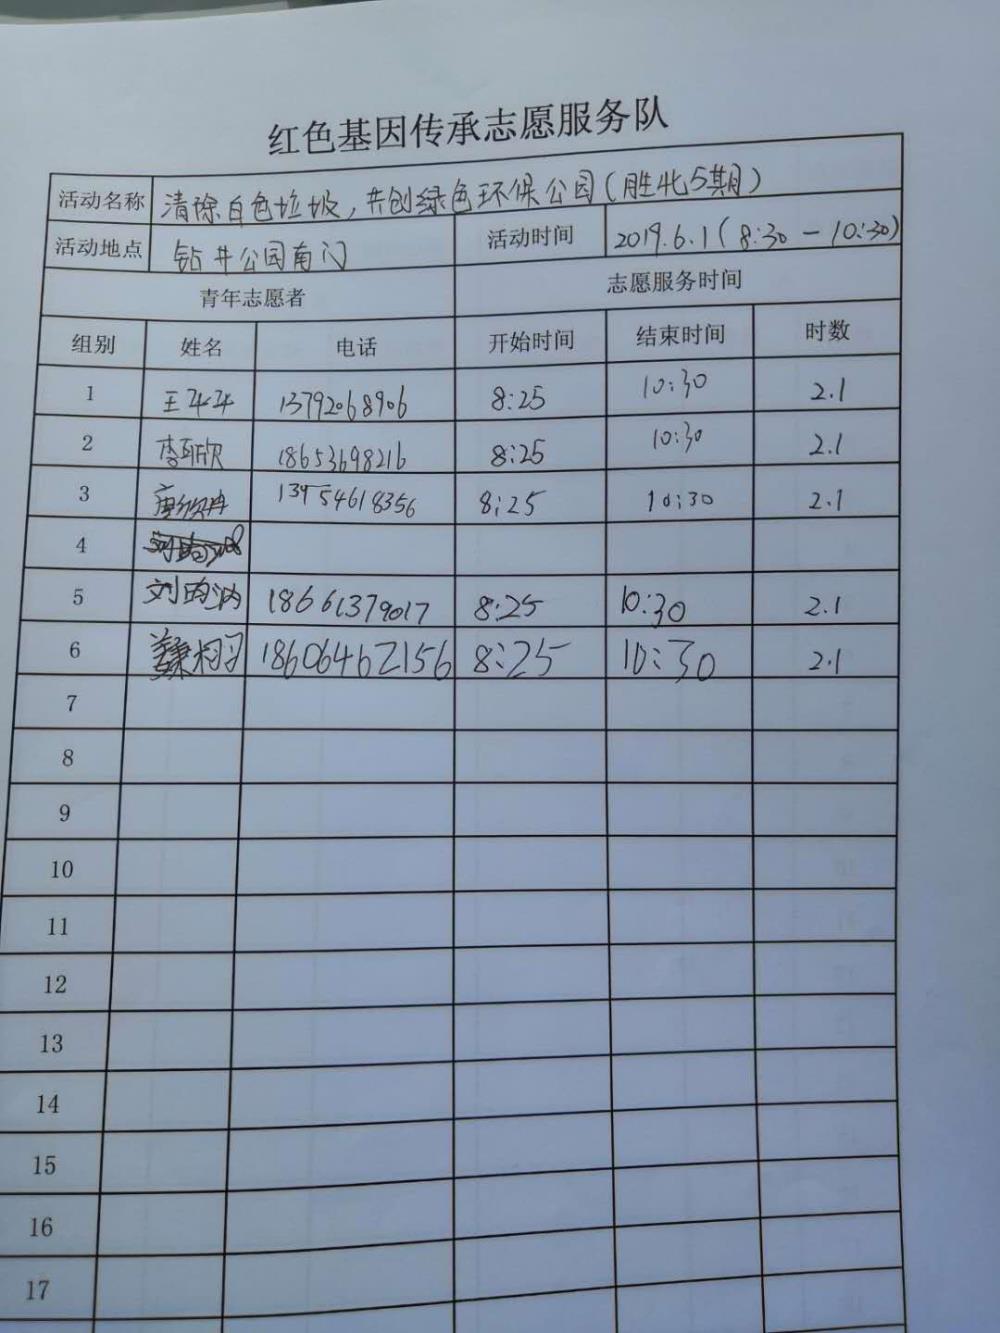 红色基因传承志愿服务队
活动名称 清除白色垃圾，共创绿色环保公园（胜北5期）
活动地点 钻井公园南门 活动时间 2019.6.1（8:30－10:30）
青年志愿者 志愿服务时间
组别 姓名 电话 开始时间 结束时间 时数
1 王 13792068906 8:25 10:30 2.1
2 李 欣 18653698216 8:25 10:30 2.1
3 13954618356 8:25 10:30 2.1
4
5 刘 18661379017 8:25 10:30 2.1
6 18606462156 8:25 10:30 2.1
7
8
9
10
11
12
13
14
15
16
17